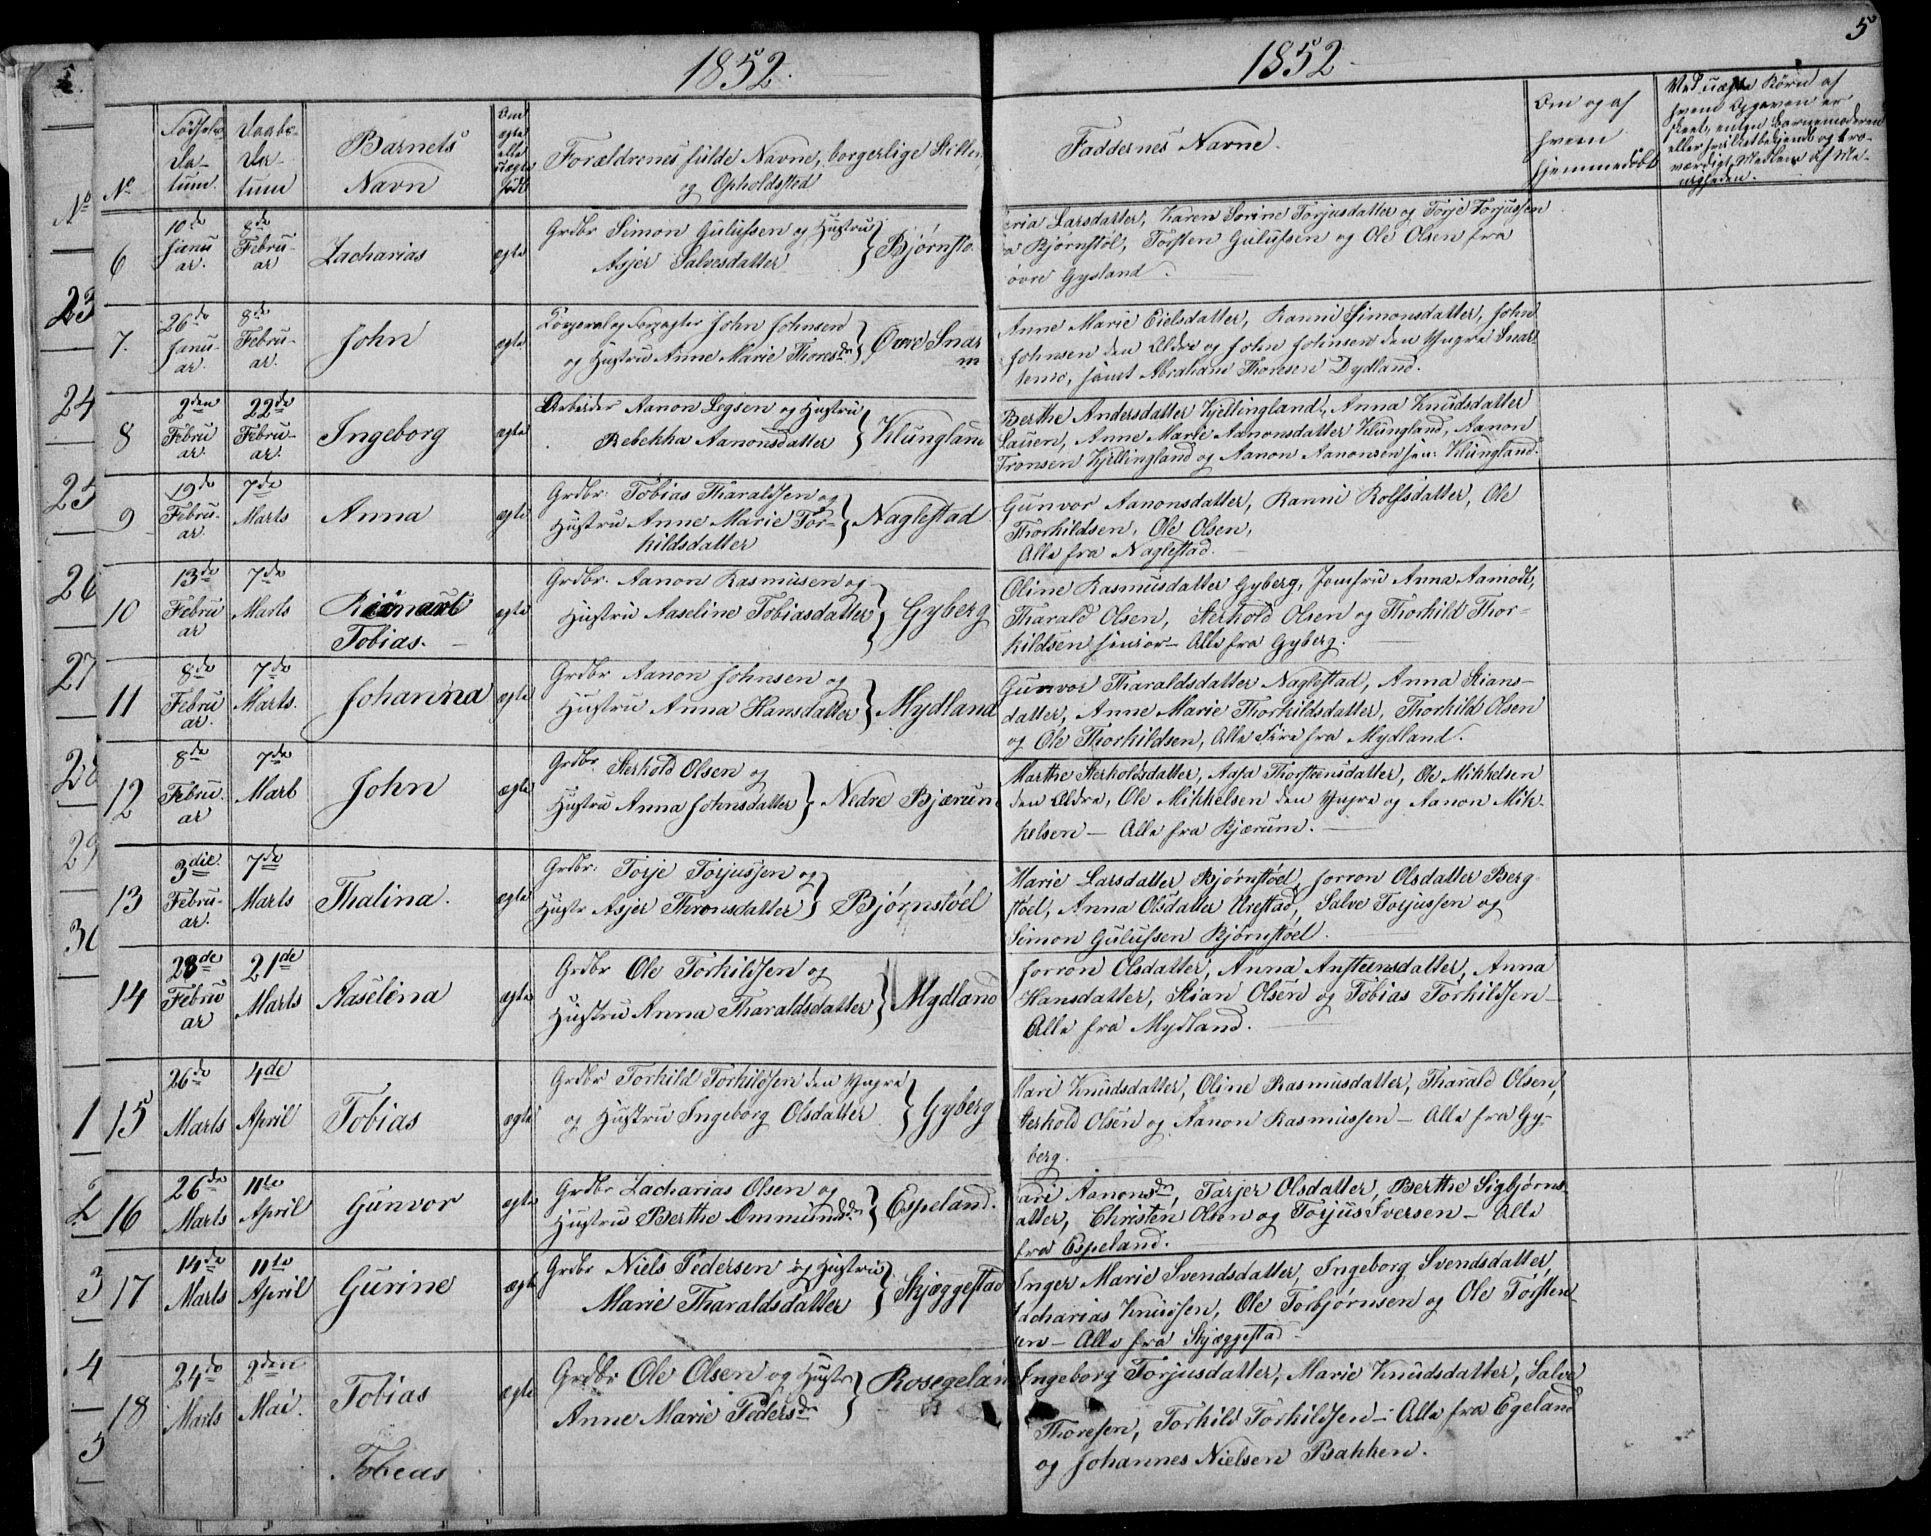 1852.
1852.
5
No
Fødsels-
Da-
tum.
Daabs-
Da-
tum
Barnets
Navn
Om
ægte
eller
uægte
født
Forældrenes fulde Navne, borgerlige Stilling
og Opholdsted
Faddernes Navne.
Om og af
hvem
hjemmedøbt
Ved uægte Børn af
hvem Opgaven er
skeet, enten Barnemoderen
eller
værdigt Medlem af Me-
nigheden.
6
10de
Janu-
ar.
8de
Febru-
ar
Zacharias
ægte
Grdbr Simon Gulufsen og Hustru
Asjer Salvesdatter
Bjørnstø
Larsdatter, Karen Sorine Torjusdatter og Torje Torjussen
Bjørnstøl, Torsten Gulufsen og Ole Olsen fra
øvre Gysland.
7.
26de
Janu-
ar.
8de
Febru-
ar.
John
ægte
Korporal og Forpagter John Johnsen
og Hustru Anne Marie Thoresdr
Øvre Snar
Anne Marie Eielsdatter, Ranni Simonsdatter, John
Johnsen den Ældre og John Johnsen den Yngre Snar
temo, samt Abraham Thoresen Dydland.
8
2den
Febru
ar.
22de
Febru-
ar.
Ingeborg
ægte
Arbeider Aanon Legsen og Hustru
Rebekka Aanonsdatter
Klungland
Berthe Andersdatter Kjellingland, Anna Knudsdatter
Lauen, Anne Marie Aanonsdatter Klungland, Aanon
Tronsen Kjellingland og Aanon Aanonsen sen: Klungland.
9
19de
Febru-
ar.
7de
Marts
Anna
ægte
Grdbr: Tobias Tharaldsen og
Hustru Anne Marie Tor-
kildsdatter
Naglestad
Gunvor Aanonsdatter, Ranni Rolfsdatter, Ole
Thorkildsen, Ole Olsen,
Alle fra Naglestad.
10
13de
Febru
ar
7de
Marts
Reinart
Tobias.
ægte
Grdbr. Aanon Rasmusen og
Hustru Aaseline Tobiasdatter
Gyberg
Oline Rasmusdatter Gyberg, Jomfru Anna Aamodt,
Tharald Olsen, Sterkold Olsen og Thorkild Thor-
kildsen junior - Alle fra Gyberg.
11
8de
Febru
ar.
7de
Marts.
Johanna
ægte
Grdbr Aanon Johnsen og
Hustru Anna Hansdatter
Mydland
Gunvor Tharaldsdatter Naglestad, Anna Stians-
datter, Anne Marie Thorkildsdatter, Thorkild Olsen
og Ole Thorkildsen, Alle Fire fra Mydland.
12
8de
Febru.
ar
7de
Mart
John
ægte
Grdbr. Sterkold Olsen og
Hustru Anna Johnsdatter
Nedre Bjærum
Marthe Sterkoldsdatter, Aasa Thorsteensdatter, Ole Mikkelsen
den Ældre, Ole Mikkelsen den Yngre og Aanon Mik-
kelsen - Alle fra Bjærum.
13
3die
Febru-
ar.
7de
Marts
Thalina.
ægte
Grdbr. Torje Torjussen og
Hustr Asjer Thronsdatter
Bjørnstøel
Marie Larsdatter Bjørnstøel, Jorron Olsdatter Berg-
støel, Anna Olsdatter Urestad, Salve Torjussen og
Simon Gulufsen Bjørnstøel.
14
28de
Febru
ar
21de
Marts
Aaselina
ægte
Grdbr Ole Torkildsen og
Hustru Anna Tharaldsdatter
Mydland
Jorron Olsdatter, Anna Ansteensdatter, Anna
Hansdatter, Stian Olsen og Tobias Torkildsen -
Alle fra Mydland.
15
26de
Marts
4de
April
Tobias
ægte
Grdbr Torkild Torkildsen den Yngre
og Hustru Ingeborg Olsdatter
Gyberg
Mari Knudsdatter, Oline Rasmusdatter, Tharald Olsen,
Sterkold Olsen og Aanon Rasmussen - Alle fra Gy-
berg.
16
26de
Marts
11te
April
Gunvor
ægte
Grdbr Zacharias Olsen og
Hustru Berthe Ommundsdr
Espeland.
Mari Aanonsdr, Tarjer Olsdatter, Berthe Sigbjørns-
datter, Christen Olsen og Torjus Iversen - Alle
fra Espeland.
17
14de
Marts
11te
April
Gurine
ægte
Grdbr Niels Pedersen og Hustru
Marie Tharaldsdatter
Skjæggestad
Inger Marie Svendsdatter, Ingeborg Svendsdatter,
Zacharias Knudsen, Ole Torbjørnsen og Ole Torsten-
sen - Alle fra Skjæggestad -
18
24de
Marts
2den
Mai.
Tobias
ægte
Grdbr Ole Olsen og Hustr
Anne Marie Pedersdr
Rosegelan
Ingeborg Torjusdatter, Marie Knudsdatter, Salve
Thoresen, Torkild Torkildsen - Alle fra Egeland
og Johannes Nielsen Bakken.
Tobias
No
23
24
25
26
27
28
29
30
1
2
3
4
5